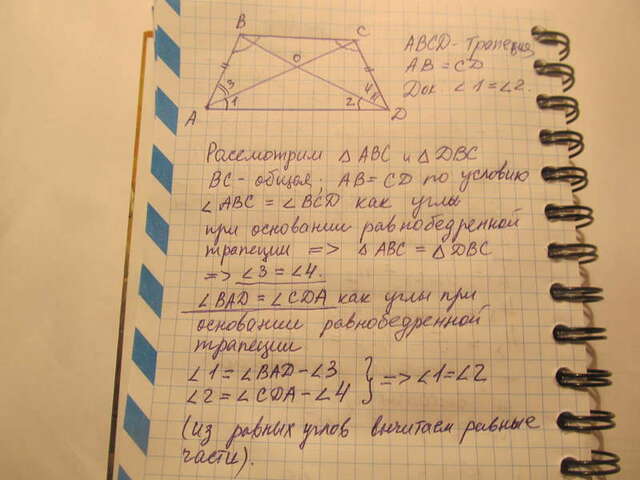 B
C
O
A
D
3
1
2
4
ABCD - Трапеция
AB = CD
Док ∠1 = ∠2.
Рассмотрим △ ABC и △ DBC
BC - общая; AB = CD по условию
∠ABC = ∠BCD как углы
при основании равнобедренной
трапеции => △ ABC = △ DBC
=> ∠3 = ∠4.
∠BAD = ∠CDA как углы при
основании равнобедренной
трапеции
∠1 = ∠BAD - ∠3 } => ∠1 = ∠2
∠2 = ∠CDA - ∠4
(из равных углов вычитаем равные
части).